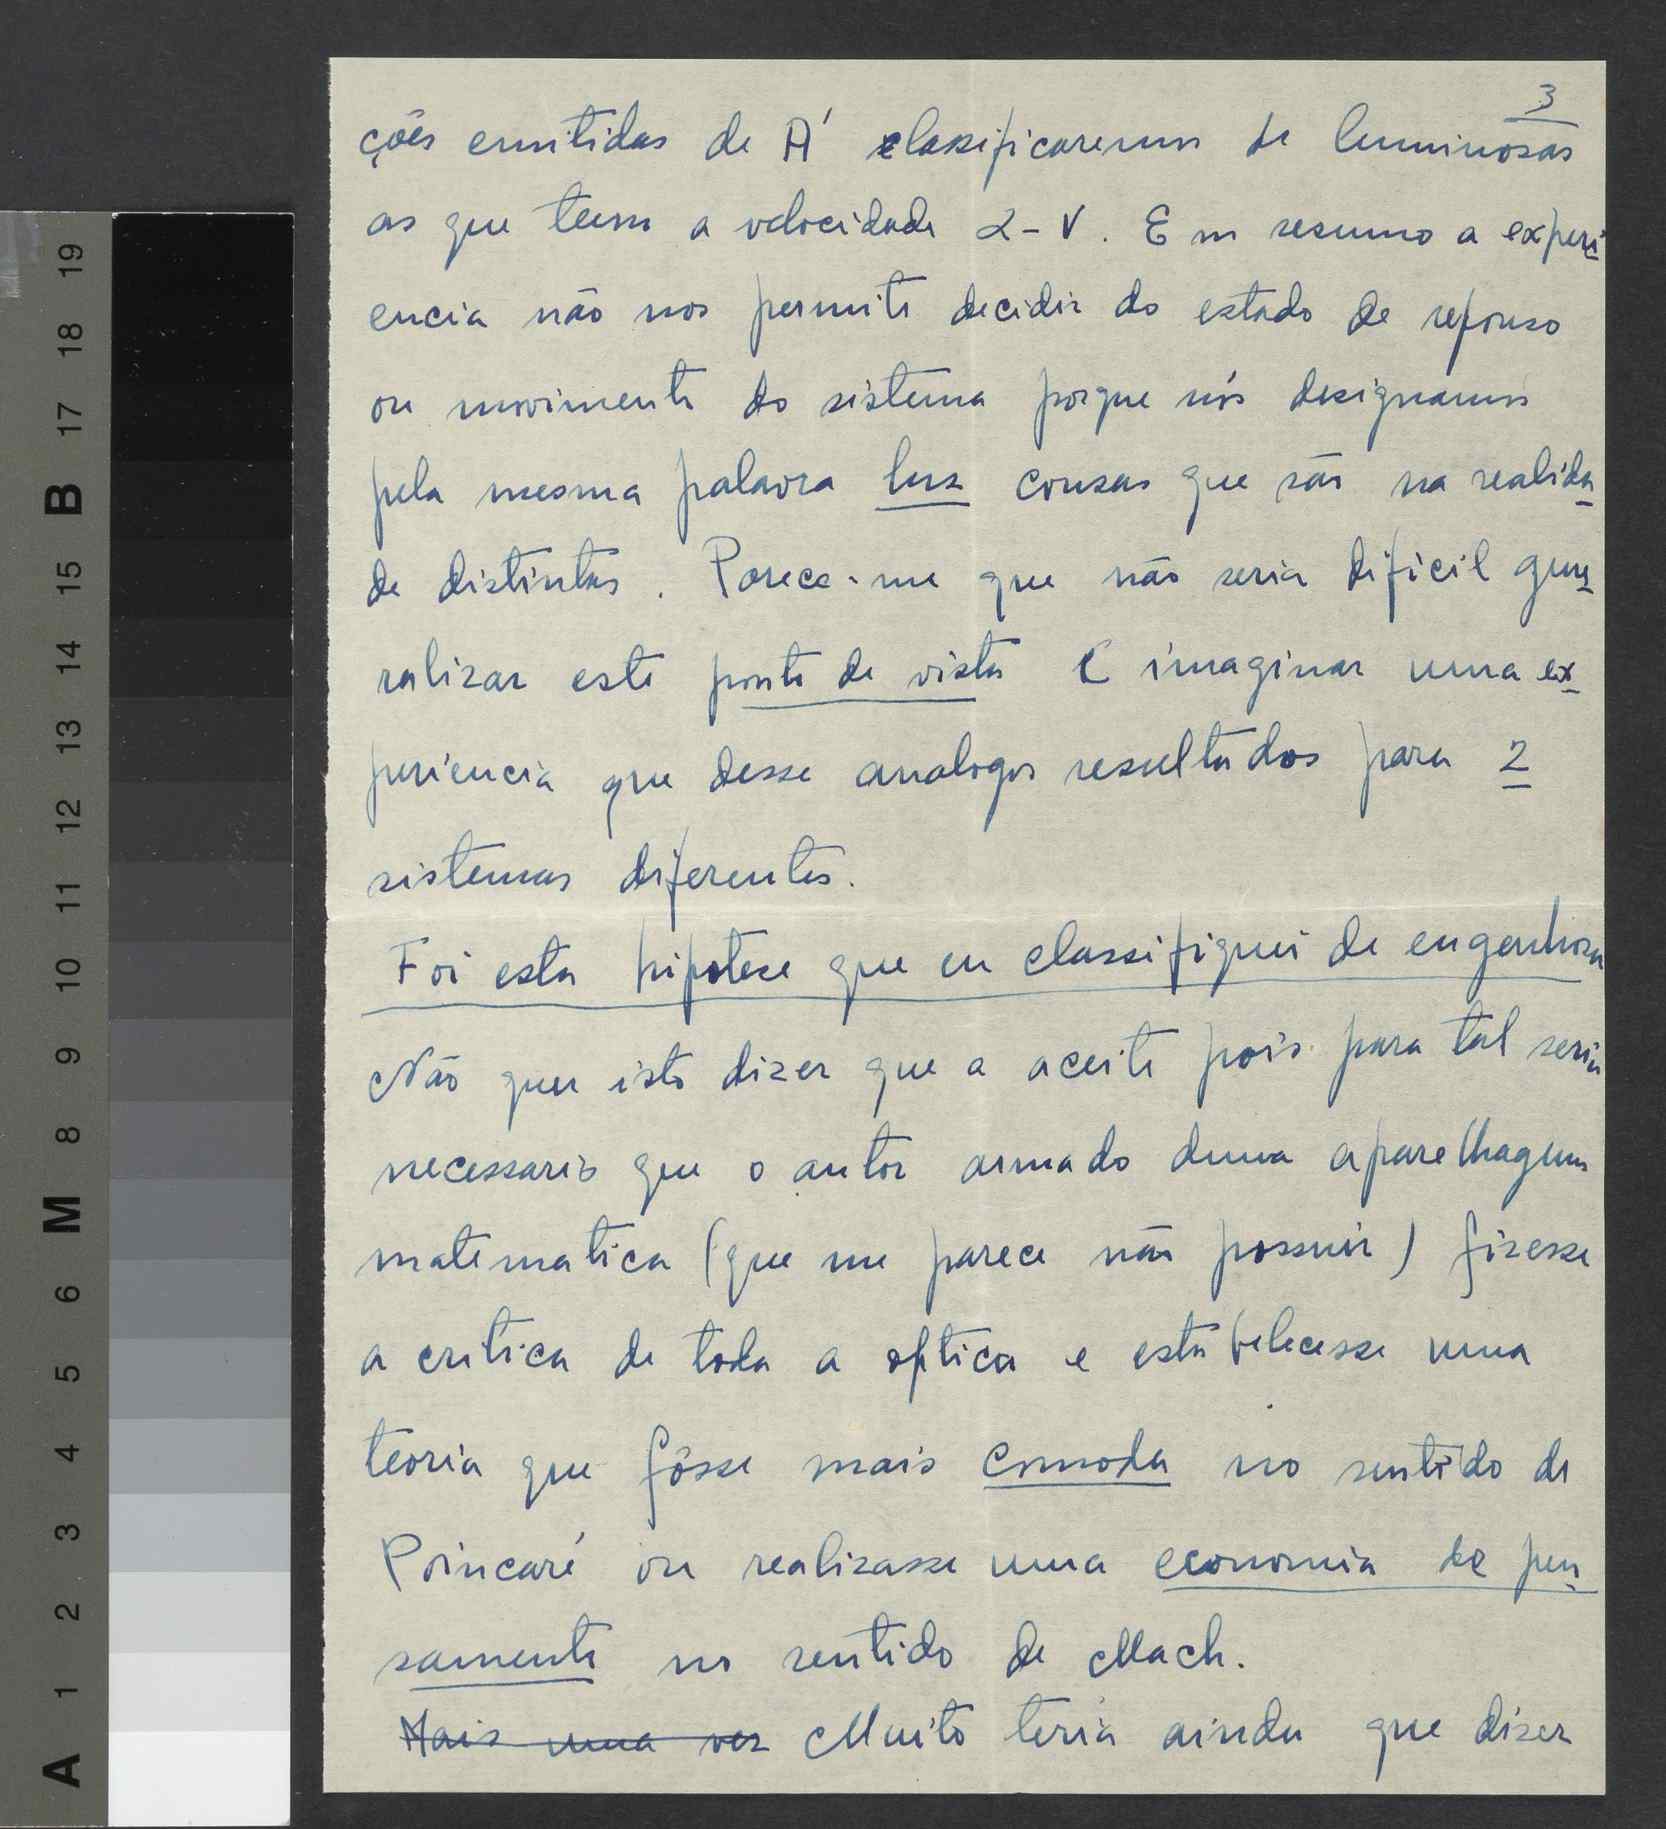 3
ções emitidas de A' classificaremos de luminosas
as que teem a velocidade α-V. Em resumo a experi
encia não nos permite decidir do estado de repouso
ou movimento do sistema porque nós designamos
pela mesma palavra luz cousas que são na realida
de distintas. Parece-me que não seria dificil gene
ralizar este ponto de vista e imaginar uma ex
periencia que desse analogos resultados para 2
sistemas diferentes.
Foi esta hipotese que eu classifiquei de engenhosa
Não quer isto dizer que a aceite pois para tal seria
necessario que o autor armado duma aparelhagem
matematica (que me parece não possuir) fizesse
a critica de toda a optica e estabelecesse uma
teoria que fôsse mais comoda no sentido de
Poincaré ou realizasse uma economia de pen
samento no sentido de Mach.
Mais uma vez Muito teria ainda que dizer
A 1 2 3 4 5 6 M 8 9 10 11 12 13 14 15 B 17 18 19